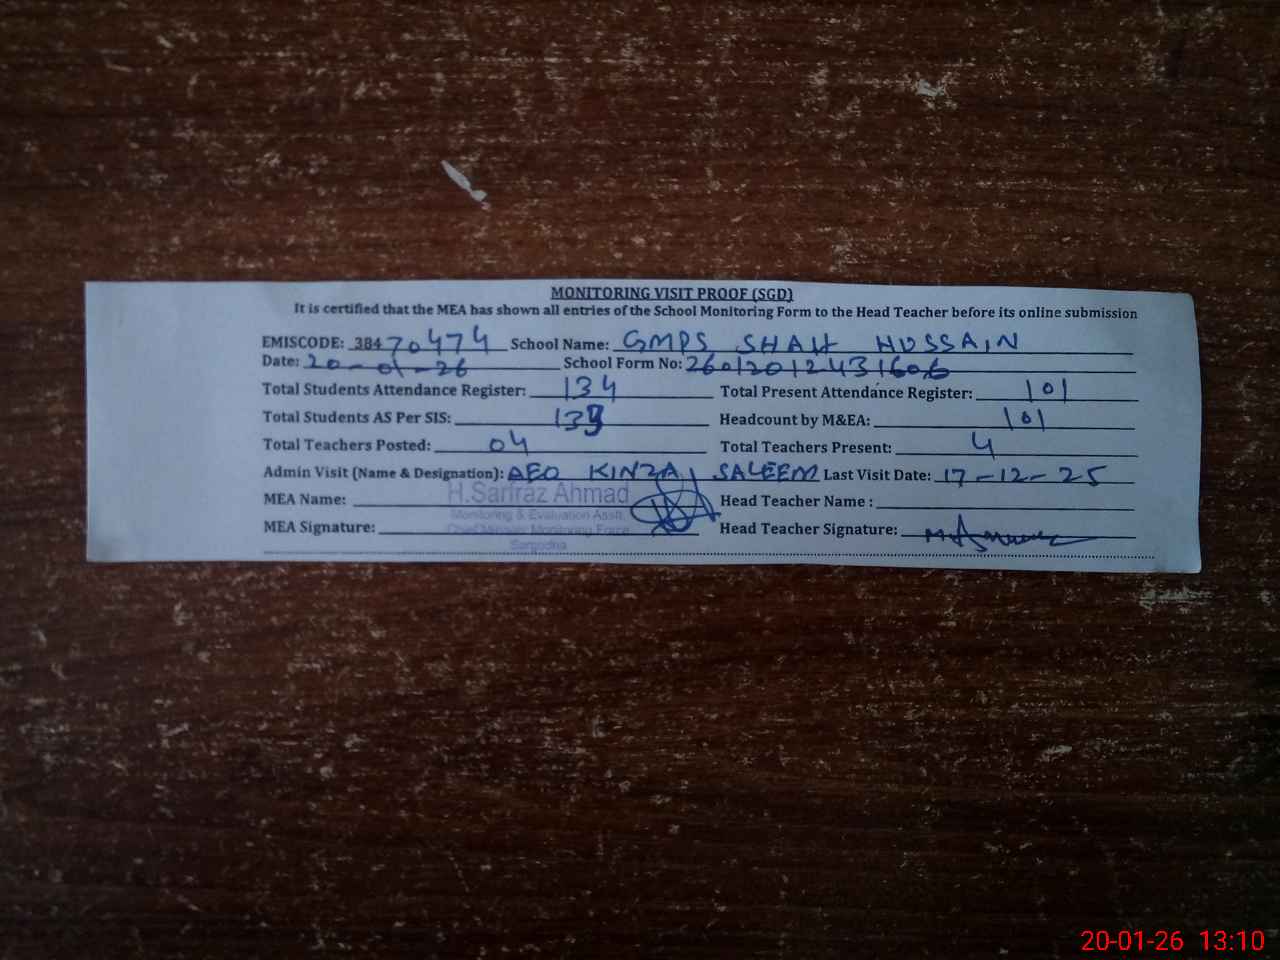 MONITORING VISIT PROOF (SGD)
It is certified that the MEA has shown all entries of the School Monitoring Form to the Head Teacher before its online submission
EMISCODE: 38470474 School Name: GMPS SHAH HUSSAIN
Date: 20-01-26 School Form No: 26012012431606
Total Students Attendance Register: 134 Total Present Attendance Register: 101
Total Students AS Per SIS: Headcount by M&EA: 101
Total Teachers Posted: 04 Total Teachers Present: 4
Admin Visit (Name & Designation): AEO KINZA SALEEM Last Visit Date: 17-12-25
MEA Name: H.Sarfraz Ahmad Head Teacher Name :
Monitoring & Evaluation Asstt.
Chief Minister Monitoring Force
MEA Signature: Head Teacher Signature:
Sargodha
20-01-26 13:10